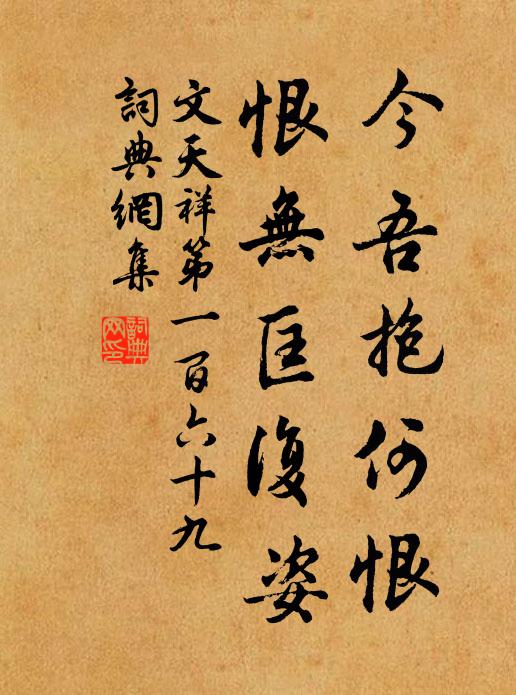 今吾抱何恨
恨無匡復姿
文天祥第一百六十九
詞典網集
詞典网印